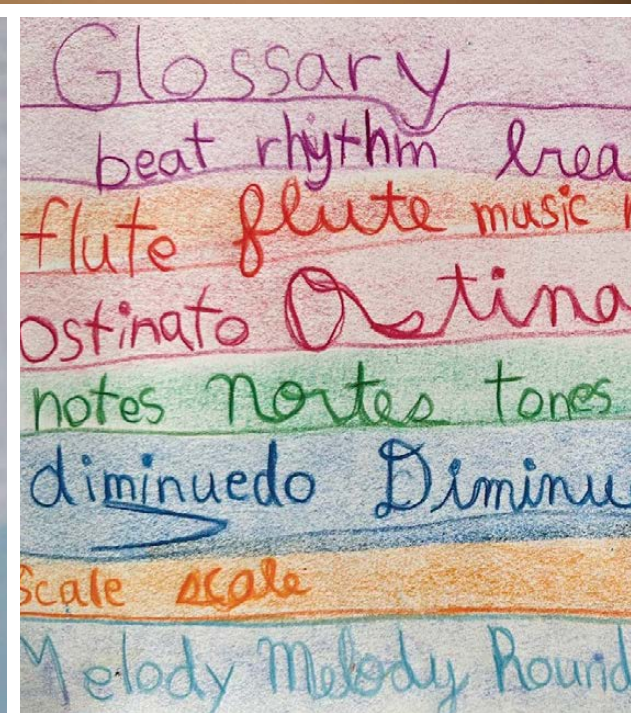 Glossary
beat rhythm
flute flute music
ostinato
notes nortes tones
diminuedo
scale scale
Melody Melody Round